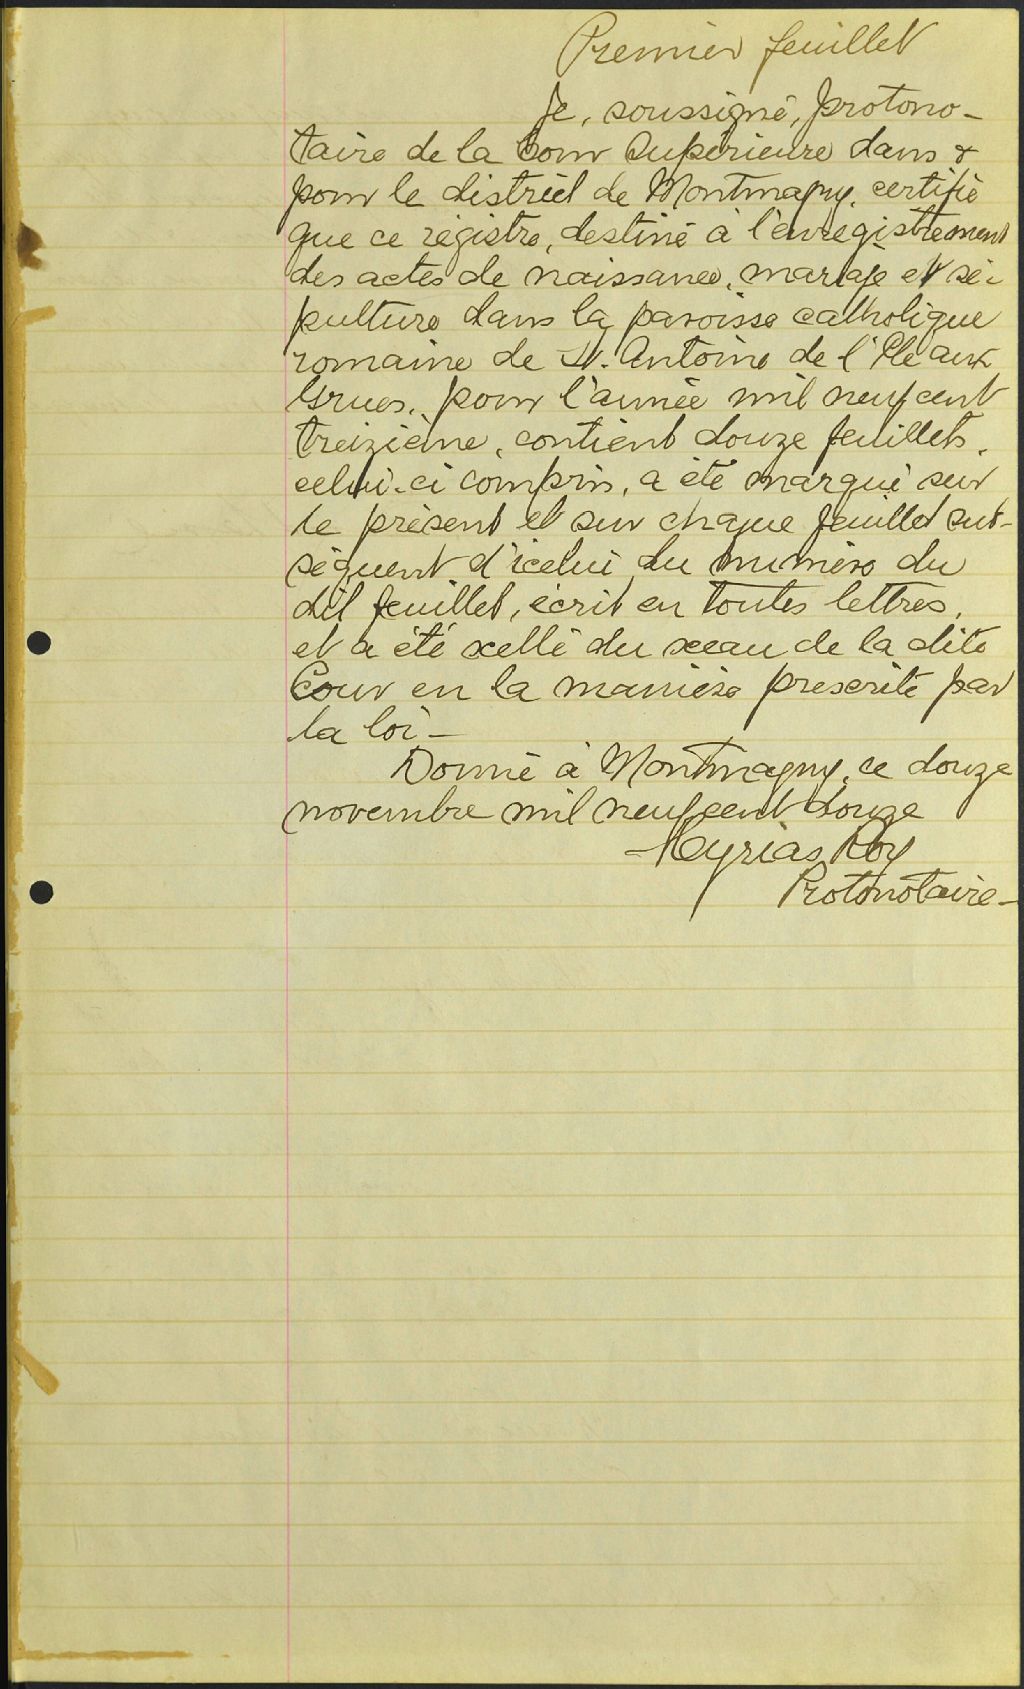 Premier feuillet
Je, soussigné, protono-
taire de la Cour Supérieure dans &
pour le district de Montmagny, certifie
que ce régistre, destiné à l'enregistrement
des actes de naissance, mariage et sé-
pulture dans la paroisse catholique
romaine de St. Antoine de l'Ile aux
Grues, pour l'année mil neuf cent
treizième, contient douze feuillets,
celui-ci compris, a été marqué sur
le présent et sur chaque feuillet sub-
séquent d'icelui du numéro du
dit feuillet, écrit en toutes lettres,
et a été scellé du sceau de la dite
Cour en la manière prescrite par
la loi -
Donné à Montmagny, ce douze
novembre mil neuf cent douze
Roy
Protonotaire -